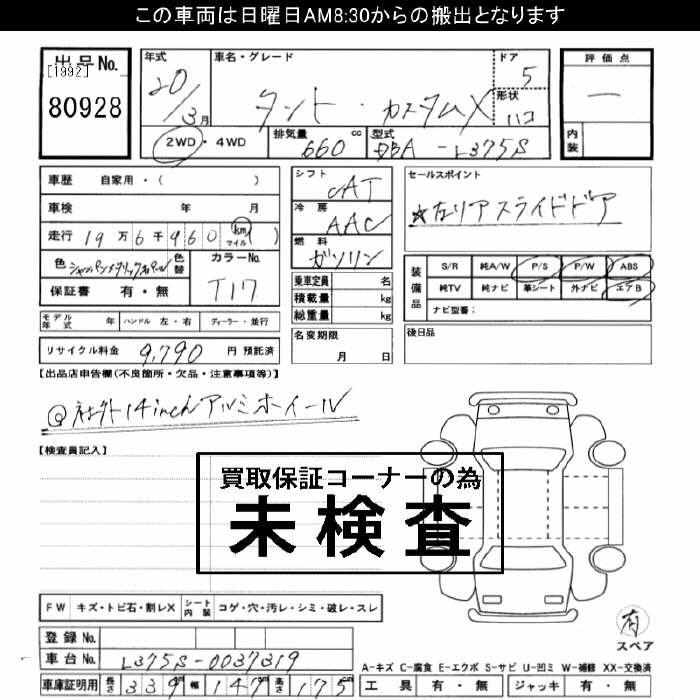 この車両は日曜日AM8:30からの搬出となります
出品No.
[1992]
80928
年式
20/3月
車名・グレード
タント・カスタムX
ドア
5
形状
ハコ
評価点
―
内装
2WD・4WD
排気量
660 cc
型式
DBA-L375S
車歴 自家用・( )
車検 年 月
走行 19万6千960 (km マイル)
色
色替
カラーNo.
T17
保証書 有・無
シフト
CAT
冷房
AAC
燃料
ガソリン
乗車定員 名
積載量 kg
総重量 kg
セールスポイント
☆左リアスライドドア
装備品
S/R 純A/W P/S P/W ABS
純TV 純ナビ 革シート 外ナビ エアB
ナビ型番:
モデル年式 年 ハンドル 左・右 ディーラー・並行
名変期限
月 日
後日品
リサイクル料金 9,790 円 預託済
【出品店申告欄(不良箇所・欠品・注意事項等)】
社外14inchアルミホイール
【検査員記入】
買取保証コーナーの為
未検査
FW キズ・トビ石・割レX シート内装 コゲ・穴・汚レ・シミ・破レ・スレ
有
スペア
登録No.
車台No. L375S-0037319
A-キズ C-腐食 E-エクボ S-サビ U-凹ミ W-補修 XX-交換済
車庫証明用 長さ 339 幅 147 高さ 175
工具 有・無 ジャッキ 有・無